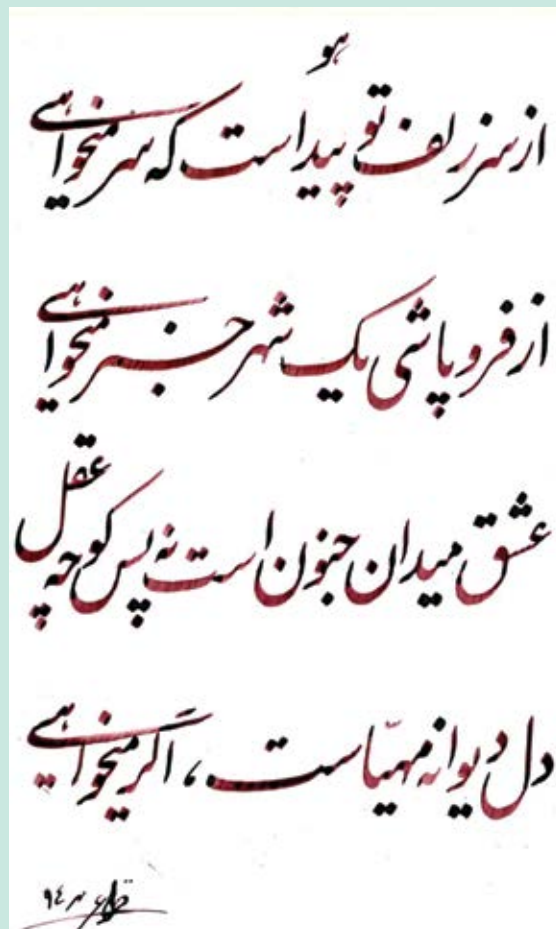 هو
از سر زلف تو پیداست که سر میخواهی
از فروپاشی یک شهر خبر میخواهی
عشق میدان جنون است نه پس کوچه عقل
دل دیوانه مهیّاست ، اگر میخواهی
۹۴